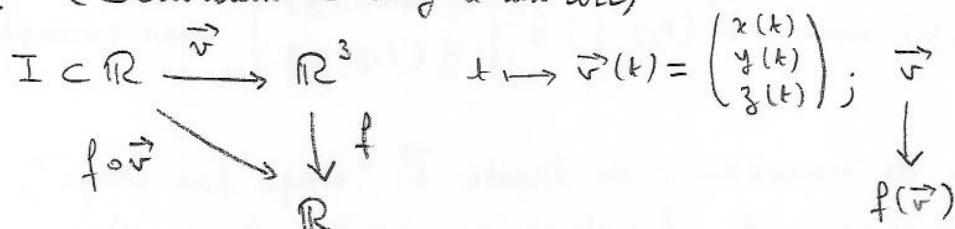 I ⊂ ℝ —v⃗→ ℝ³   t ⟼ v⃗(t) = (x(t) y(t) z(t)) ;   v⃗
f∘v⃗ ↘   ↓ f   ↓
ℝ   f(v⃗)